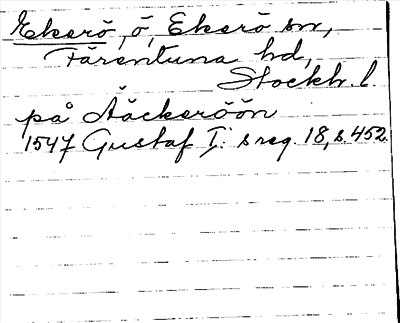 Ekerö, ö, Ekerö sn,
Färentuna hd,
Stockh. l
på Näckeröön
1547 Gustaf I: s reg. 18, s. 452.